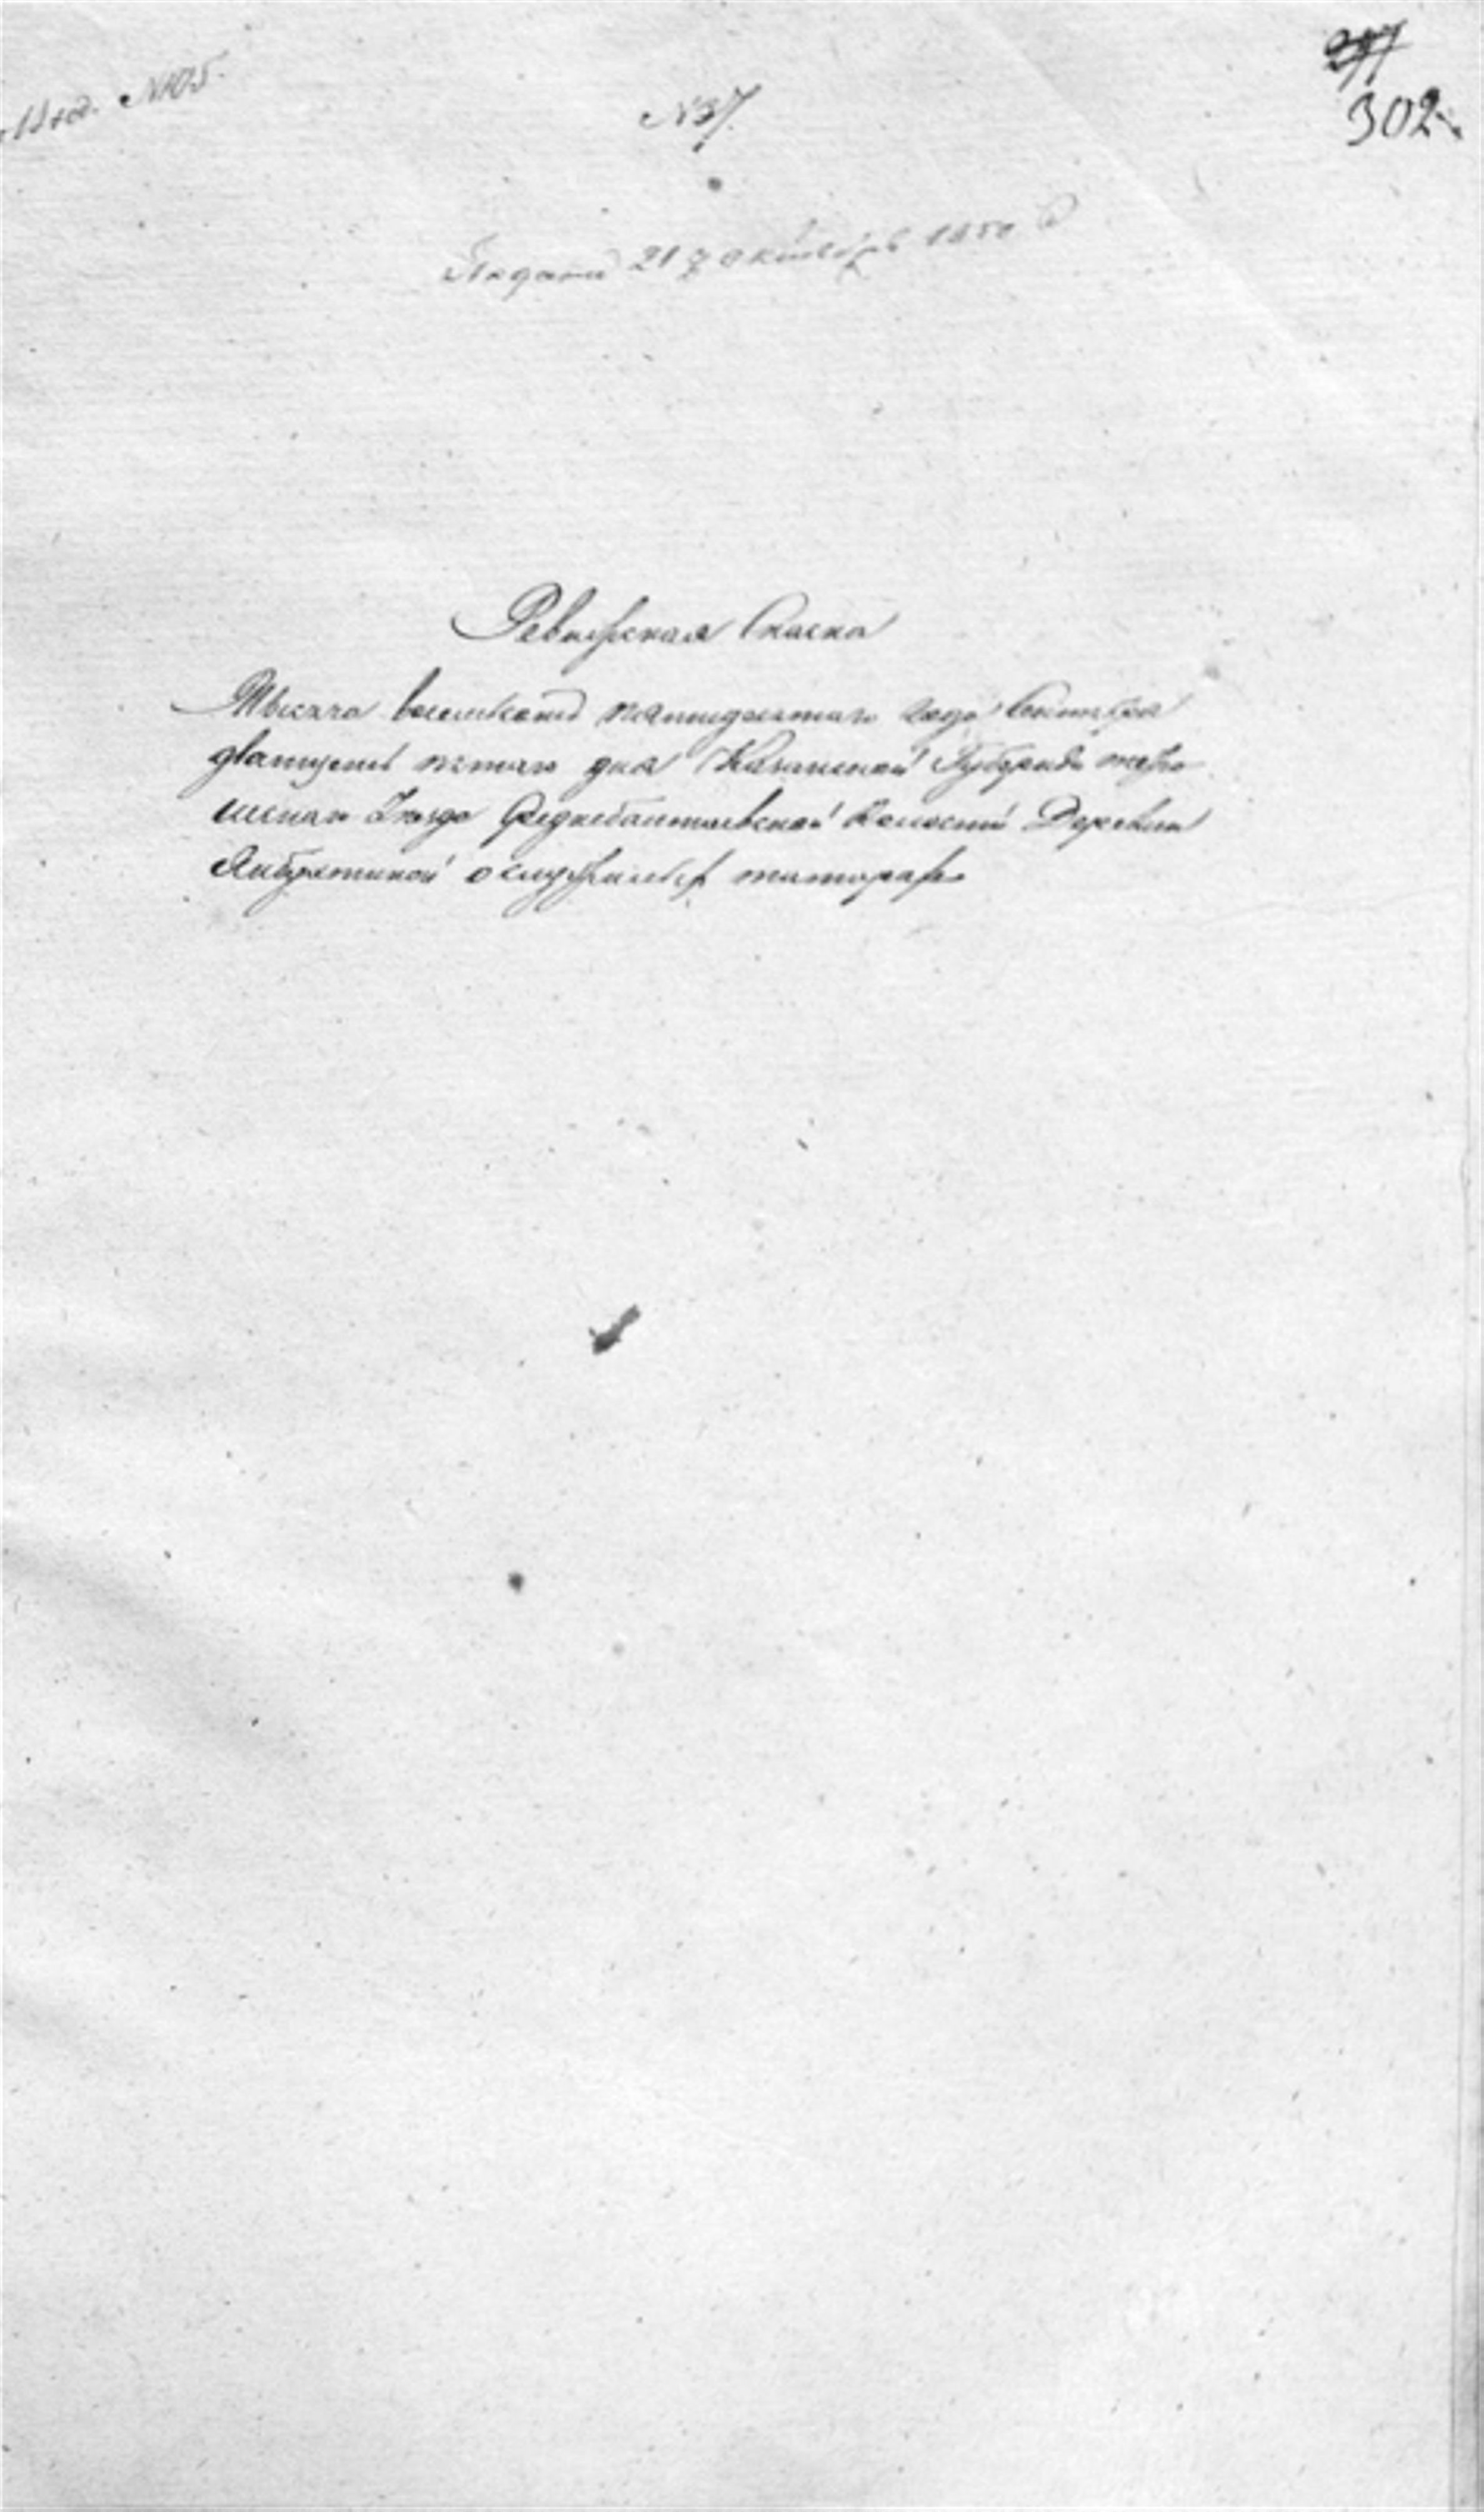 №105.
№37.
302
Подана 21 октября 1850
Ревизская Скаска
Тысяча восемьсотъ пятидесятаго года Октября
дватцеть пятаго дня Казанской Губерніи
Уезда Среднебалтаевской Волости Деревни
Янбухтиной о служилыхъ татарахъ